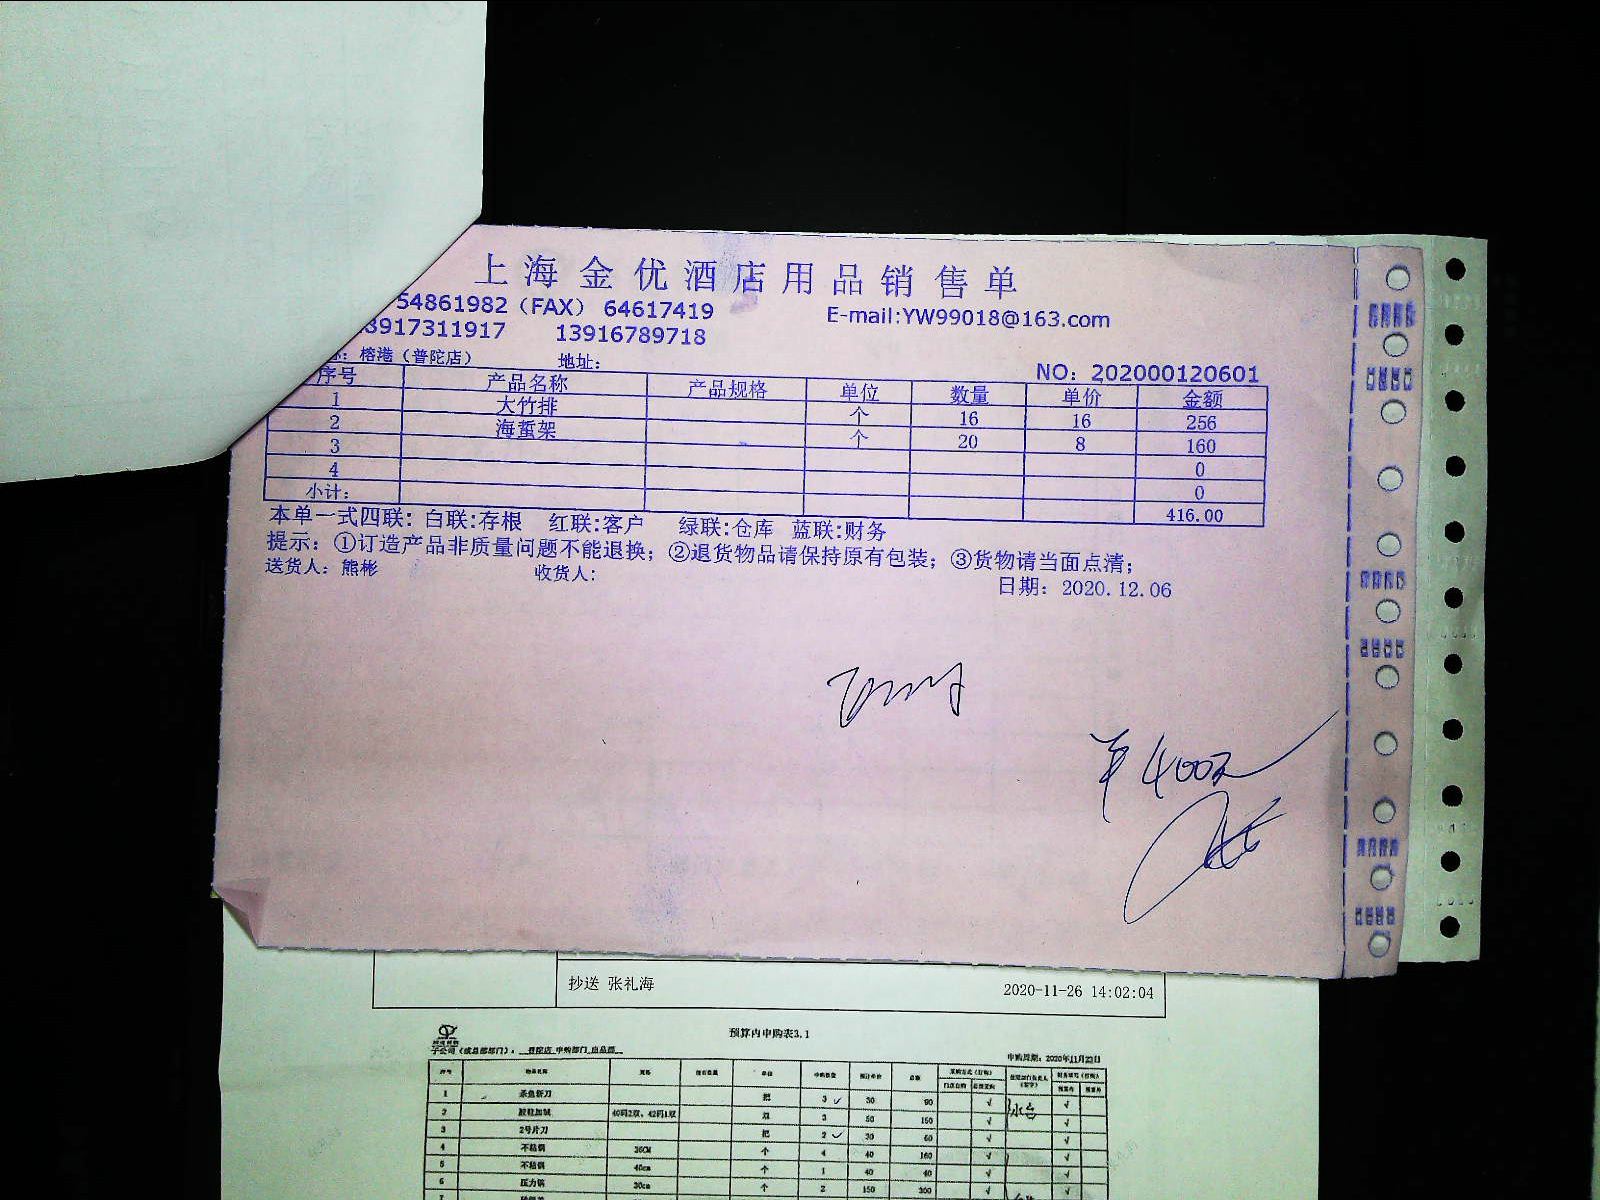 上海金优酒店用品销售单
54861982（FAX） 64617419 E-mail:YW99018@163.com
3917311917 13916789718
榕港（普陀店） 地址： NO：202000120601
序号 产品名称 产品规格 单位 数量 单价 金额
1 大竹排 个 16 16 256
2 海蜇架 个 20 8 160
3 0
4 0
小计： 416.00
本单一式四联：白联:存根 红联:客户 绿联:仓库 蓝联:财务
提示：①订造产品非质量问题不能退换；②退货物品请保持原有包装；③货物请当面点清；
送货人：熊彬 收货人： 日期：2020.12.06
抄送 张礼海 2020-11-26 14:02:04
预算内申购表3.1
子公司（或总部部门）：普陀店 申购部门 出品部 申购周期：2020年11月23日
序号 物品名称 规格 单位 申购数量 预计单价 总额
1 杀鱼剪刀 把 3 30 90
2 40码2双，42码1双 双 3 50 150
3 2号片刀 把 2 30 60
4 不粘锅 36CM 个 4 40 160
5 不粘锅 40cm 个 1 40 40
6 压力锅 30cm 个 2 150 300